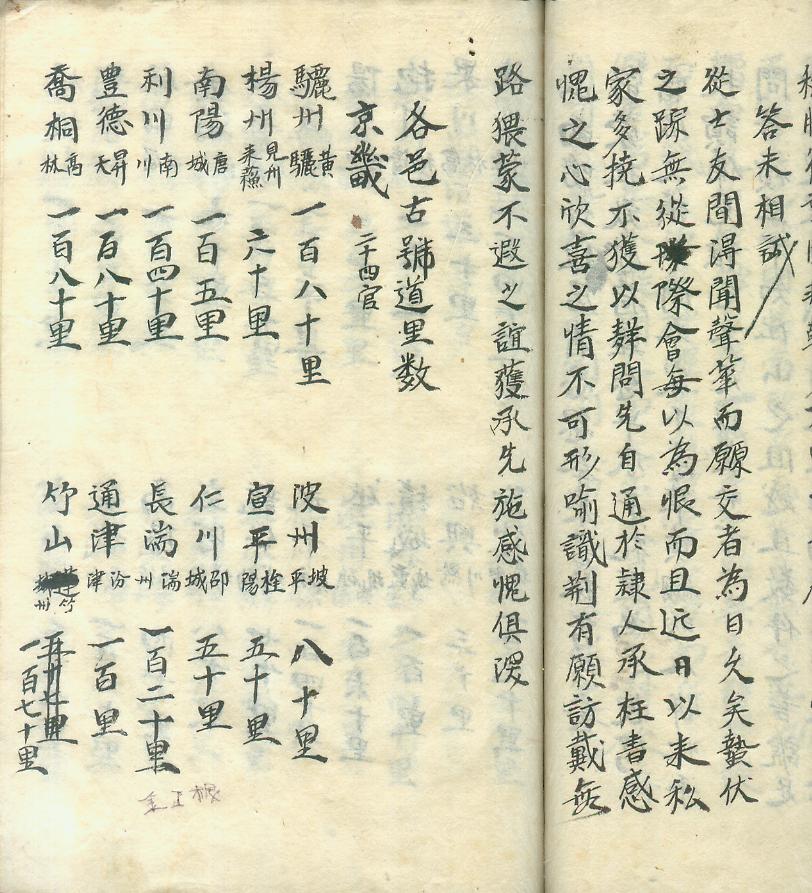 答未相誠
從士友間淂聞聲華而願交者為日久矣蟄伏
之踪無從際會每以為恨而且近日以来私
家多撓不獲以辤問先自通於隷人承枉書感
愧之心欣喜之情不可形喻識荆有願訪戴無
路猥蒙不遐之誼獲承先施感愧俱深
各邑古號道里数
京畿 二十四官
驪州 黃驪 一百八十里
坡州 坡平 八十里
楊州 見州 来蘓 六十里
宣平 栓陽 五十里
南陽 唐城 一百五里
仁川 邵城 五十里
利川 南川 一百四十里
長湍 湍州 一百二十里
豊德 昇天 一百八十里
通津 汾津 一百里
喬桐 高林 一百八十里
竹山 竹州 一百七十里